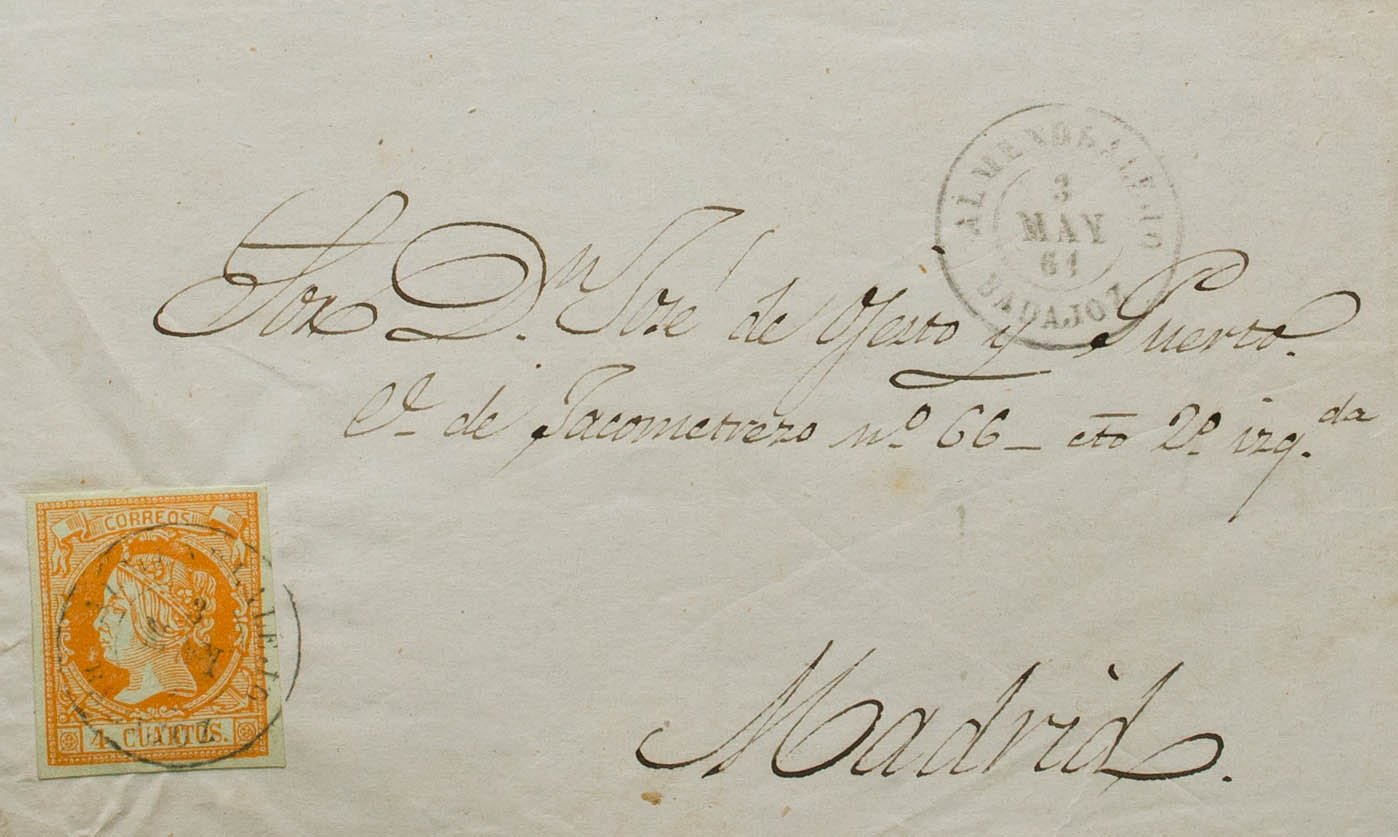 ALMENDRALEJO
3
MAY
61
BADAJOZ
Sor. Dn. José de Yesto y Puerto.
Ca. de Jacometrezo nº 66 - cto 2º izq.da
CORREOS
3
4 CUARTOS.
Madrid.